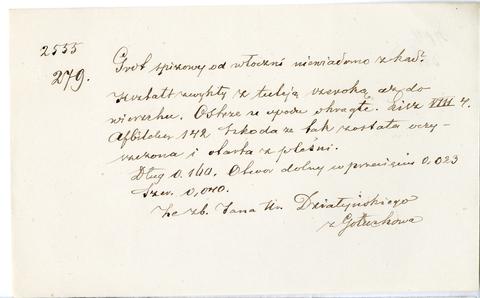 2555
279.
Grot spiżowy od włóczni niewiadomo z kąd.
Kształt zwykły z tuleją wysoką aż do
wierzchu. Ostrze u spodu okrągłe. Kicz VIII 4.
Abbildg 142 Szkoda że tak została oczy-
szczona i otarta z pleśni.
Dług 0,160. Otwór dolny w przecięciu 0,023
Szer. 0,040.
Ze zb. Jana Hr. Działyńskiego
z Gołuchowa